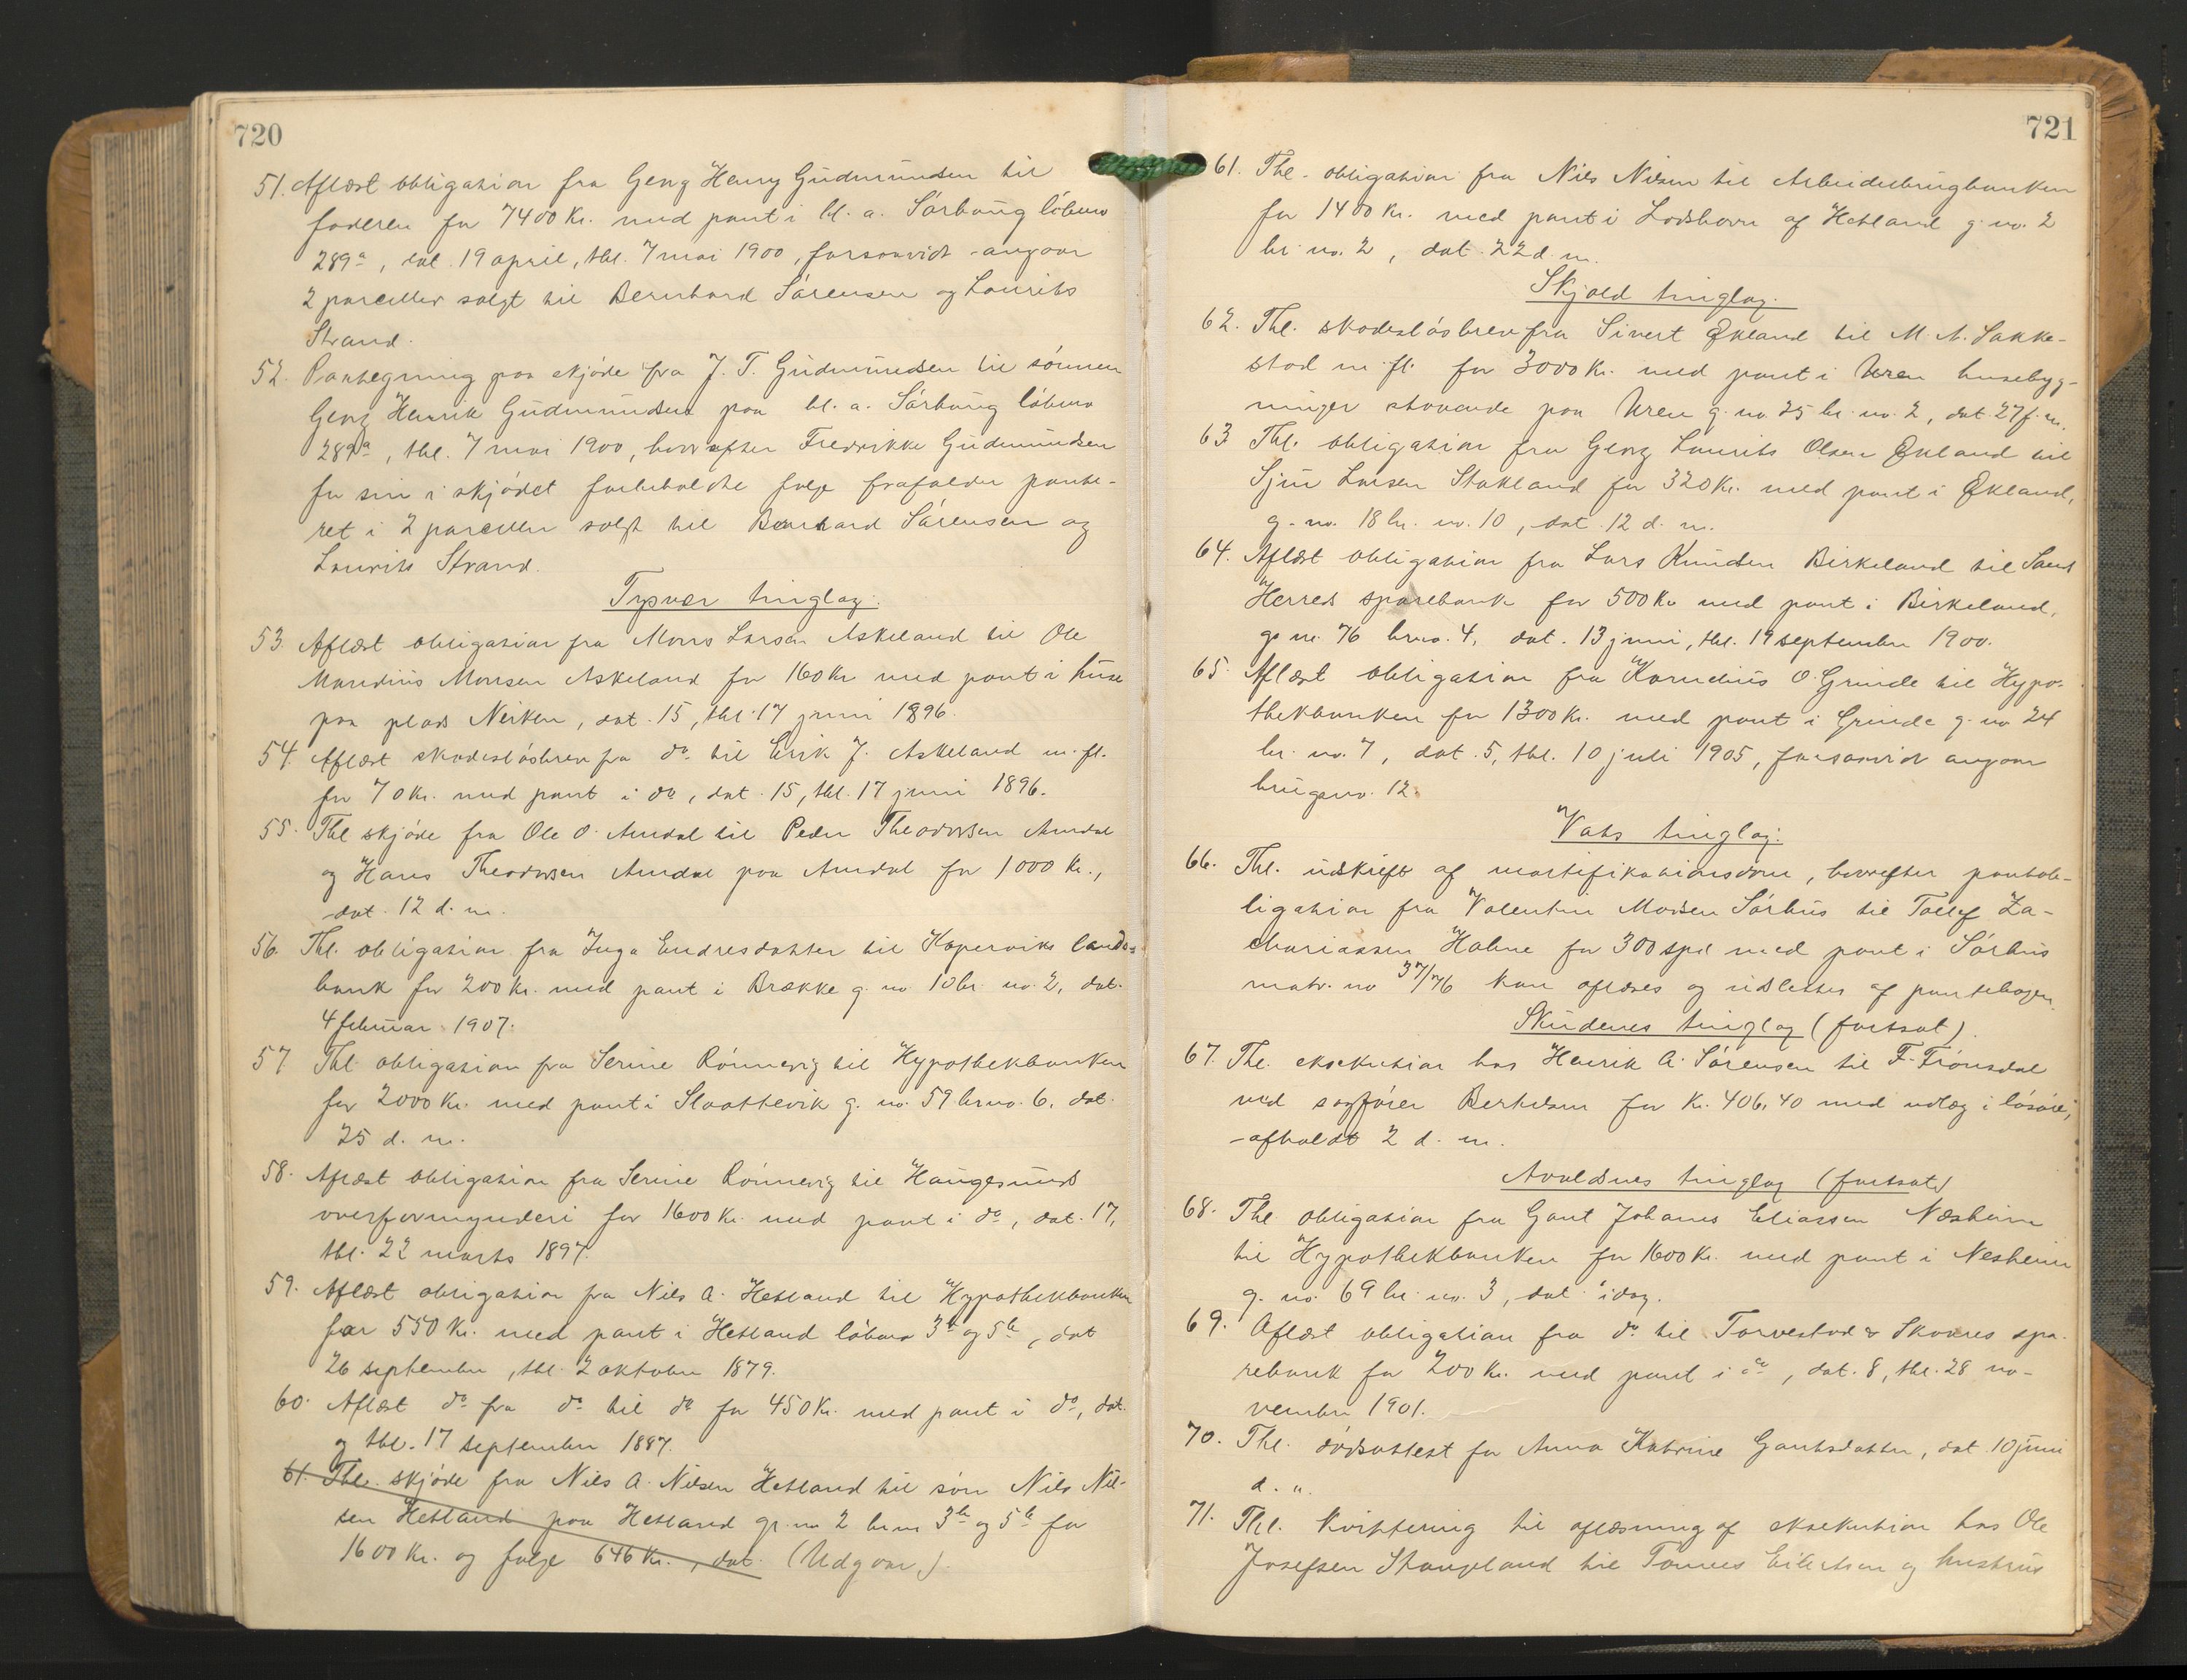 720
51. Aflæst obligation fra Georg Henry Gudmundsen til
faderen for 7400 Kr. med pant i bl. a. Sörbaug löbeno
289a, dat. 19 april, tbl. 7 mai 1900, forsaavidt angaar
2 parceller solgt til Bernhard Sörensen og Laurits
Strand.
52. Paategning paa skjöde fra J. T. Gudmundsen til sönnen
Georg Henrik Gudmundsen paa bl. a. Sörbaug löbeno
289a, tbl. 7 mai 1900, hvorefter Fredrikke Gudmundsen
for sin i skjödet forbeholdte folge frafalder pante-
ret i 2 parceller solgt til Bernhard Sörensen og
Laurits Strand.
Tysvær tinglag:
53. Aflæst obligation fra Mons Larsen Askeland til Ole
Mandius Monsen Askeland for 160 Kr med pant i huse
paa plads Neiken, dat. 15, tbl. 17 juni 1896.
54. Aflæst skadeslösbrev fra do til Erik J. Askeland m. fl.
for 70 Kr. med pant i do, dat. 15, tbl. 17 juni 1896.
55. Tbl skjöde fra Ole O. Amdal til Peder Theodorsen Amdal
og Hans Theodorsen Amdal paa Amdal for 1000 Kr.,
dat. 12 d. m.
56. Tbl. obligation fra Inga Endresdatter til Koperviks lands-
bank for 200 Kr. med pant i Brække g. no 10 br. no. 2, dat.
4 februar 1907.
57 Tbl. obligation fra Serine Rönnevig til Hypothekbanken
for 2000 Kr. med pant i Slaattevik g. no. 59 br no. 6, dat.
25 d. m.
58. Aflæst obligation fra Serine Rönnevig til Haugesunds
overformynderi for 1600 Kr. med pant i do, dat. 17,
tbl. 22 marts 1897.
59. Aflæst obligation fra Nils A. Hetland til Hypothekbanken
for 550 Kr. med pant i Hetland löbeno 3b og 5b, dat
26 september, tbl. 2 oktober 1879.
60. Aflæst do fra do til do for 450 Kr. med pant i do, dat.
og tbl. 17 september 1887.
61. Tbl. skjöde fra Nils A. Nilsen Hetland til sön Nils Nil-
sen Hetland paa Hetland gr. no 2 br no 3b og 5b for
1600 Kr. og folge 646 Kr., dat. (Udgaar).
721
61. Tbl. obligation fra Nils Nilsen til Arbeiderbrugbanken
for 1400 Kr. med pant i Lodshavn af Hetland g. no. 2
br. no. 2, dat. 22 d. m.
Skjold tinglag.
62. Tbl. skadeslösbrev fra Sivert Økland til M. A. Sakke-
stad m. fl. for 3000 Kr. med pant i Uren husebyg-
ninger staaende paa Uren g. no 25 br. no. 2, dat. 27 f. m.
63. Tbl. obligation fra Georg Laurits Olsen Økland til
Sjur Larsen Stakland for 320 Kr. med pant i Økland,
g. no. 18 br. no. 10, dat. 12 d. m.
64. Aflæst obligation fra Lars Knudsen Birkeland til
Herreds sparebank for 500 Kr med pant i Birkeland,
g. no. 76 br no. 4, dat. 13 juni, tbl. 19 september 1900.
65. Aflæst obligation fra Kornelius O. Grinde til Hypo-
thekbanken for 1300 Kr. med pant i Grinde g. no 24
br. no. 7, dat. 5, tbl. 10 juli 1905, forsaavidt angaar
brugsno. 12.
Vats tinglag:
66. Tbl. udskrift af mortifikationsdom, hvorefter pantob-
ligation fra Valentin Madsen Sörhus til Tollef Za-
chariassen Halne for 300 Spd med pant i Sörhus
matr. no 37/76 kan aflæses og udslettes af pantebogen.
Skudenes tinglag (fortsat).
67. Tbl. eksekution hos Henrik A. Sörensen til F. Fronsdal
ved sagförer Bertelsen for Kr. 406,40 med udlæg i lösöre,
afholdt 2 d. m.
Avaldsnes tinglag (fortsat)
68. Tbl obligation fra Gaut Johanes Eliassen Nesheim
til Hypothekbanken for 1600 Kr. med pant i Nesheim
g. no. 69 br. no. 3, dat. idag.
69. Aflæst obligation fra do til Torvestad & Skaares spa-
rebank for 200 Kr. med pant i do, dat. 8, tbl. 28 no-
vember 1901.
70. Tbl. dödsattest for Anna Katrine Gautsdatter, dat 10 juni
d. a.
71. Tbl. kvittering til aflæsning af eksekution hos Ole
Josefsen Stangeland til Tonnes Eilertsen og hustrus